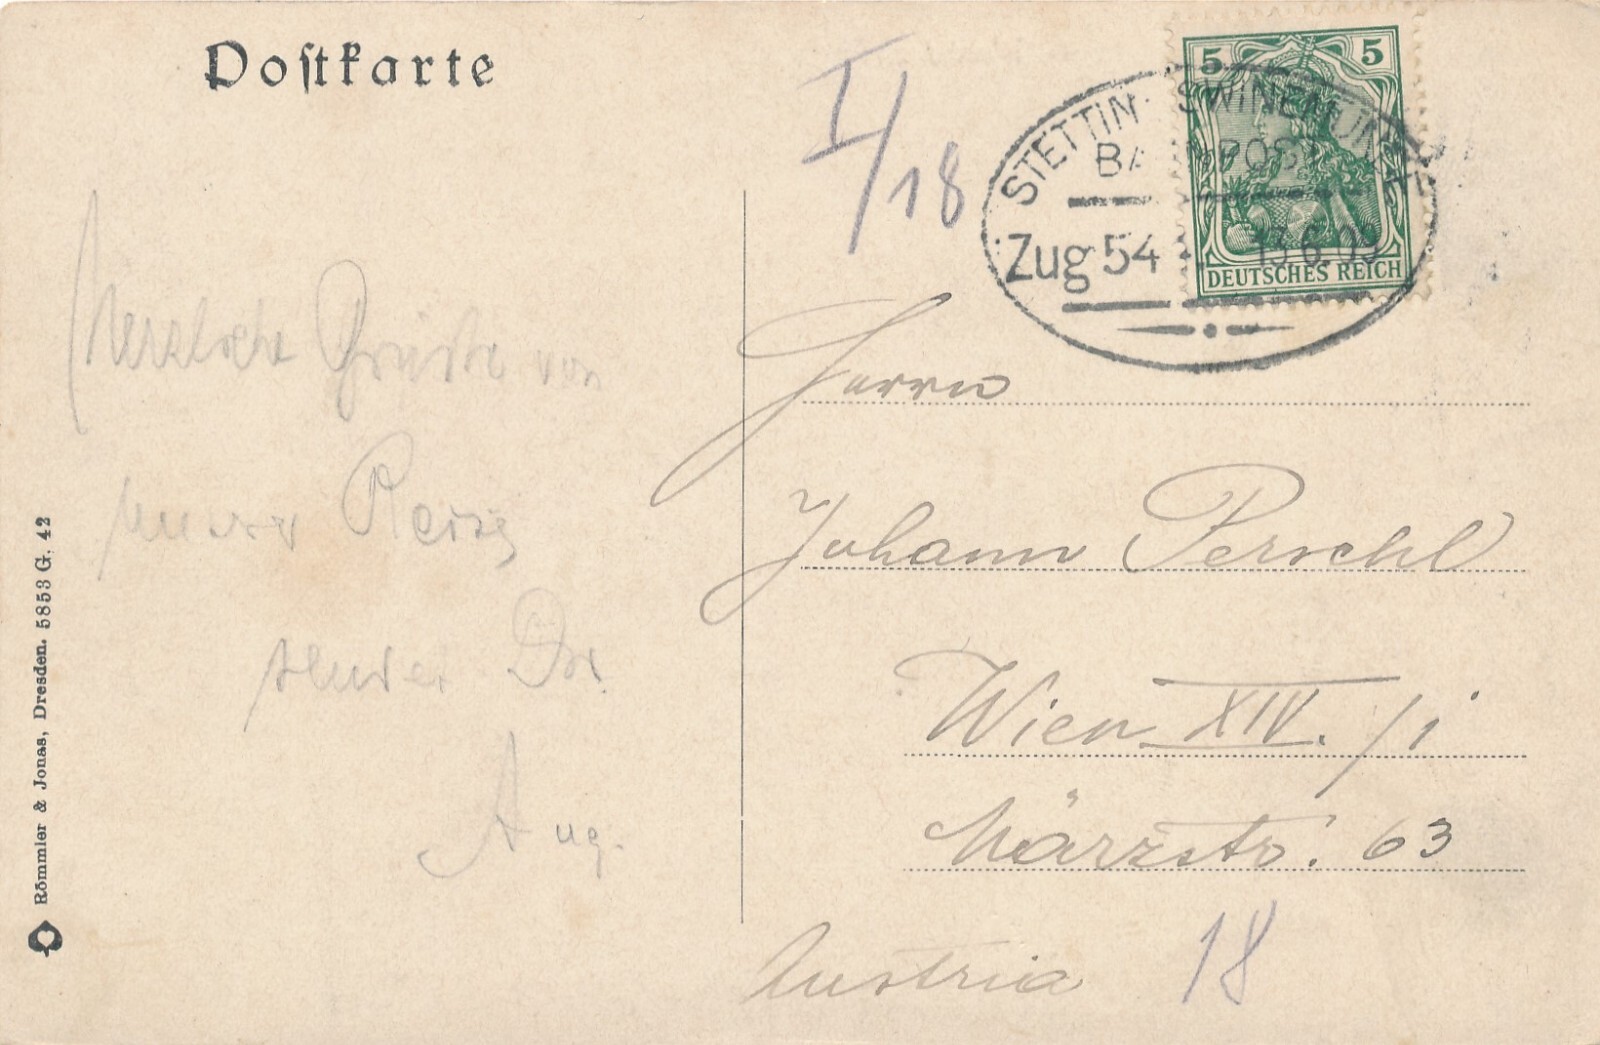 Postkarte
I/18
5 5
DEUTSCHES REICH
STETTIN - SWINEMÜNDE
BAHNPOST
Zug 54 13.6.09
Herzliche Grüße von
unserer Reise
sendet Dir
Aug.
Herrn
Johann Perschl
Wien XIV./1
Märzstr. 63
Austria 18
Römmler & Jonas, Dresden. 5853 G. 42